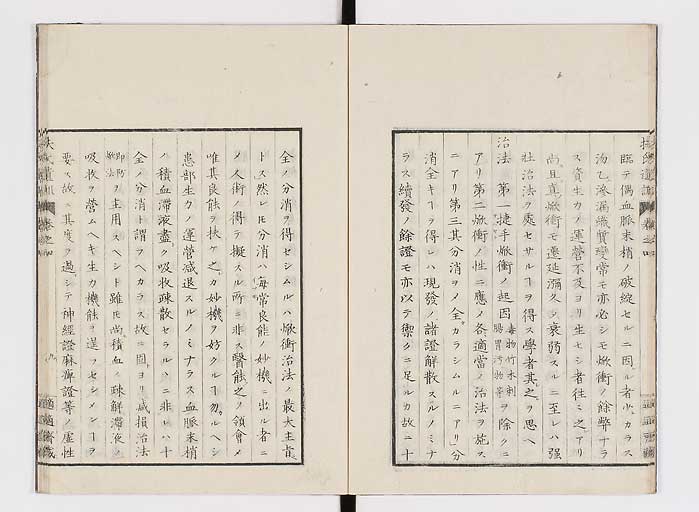 臨テ偶血脈末梢ノ破綻セルニ因ル者少カラス
汤乙滲漏織質變常モ亦必シモ焮衝ノ餘弊ナラ
ス資生カノ運營不及ヨリ生セシ者往々之アリ
尚且真焮衝モ遷延瀰久シ衰弱スルニ至レハ強
壯治法ヲ處セサルヿヲ得ス學者其之ヲ思ヘ
治法 第一捷手焮衝ノ起因毒物竹木刺腸胃汚物等ヲ除クニ
アリ第二焮衝ノ性ニ應メ各適當ノ治法ヲ施ス
ニアリ第三其分消ヲメ全カラシムルニアリ分
消全キヿヲ得レハ現發ノ諸證解散スルノミナ
ラス續發ノ餘證モ亦以テ禦クニ足ルカ故ニ十
全ノ分消ヲ得セシムルハ焮衝治法ノ最大主旨
トス然レ𪜈分消ハ毎常良能ノ妙機ニ出ル者ニ
メ人術ノ得テ擬スル所ニ非ス醫能之ノ領會メ
唯其良能ヲ扶ケ之カ妙機ヲ妨クルヿ勿ルヘシ
患部生カノ運營減退スルノミナラス血脈末梢
ノ積血滞液盡ク吸收疎散セラルヽニ非レハ十
全ノ分消ト謂フヘカラス故ニ固ヨリ減損治法
即防焮法ヲ主用スヘシト雖𪜈尚積血ノ疎解滞液ノ
吸收ヲ營ムヘキ生カ機能ヲ逞フセシメンヿヲ
要ス故ニ其度ヲ過シテ神經證麻痺證等ノ虚性
九